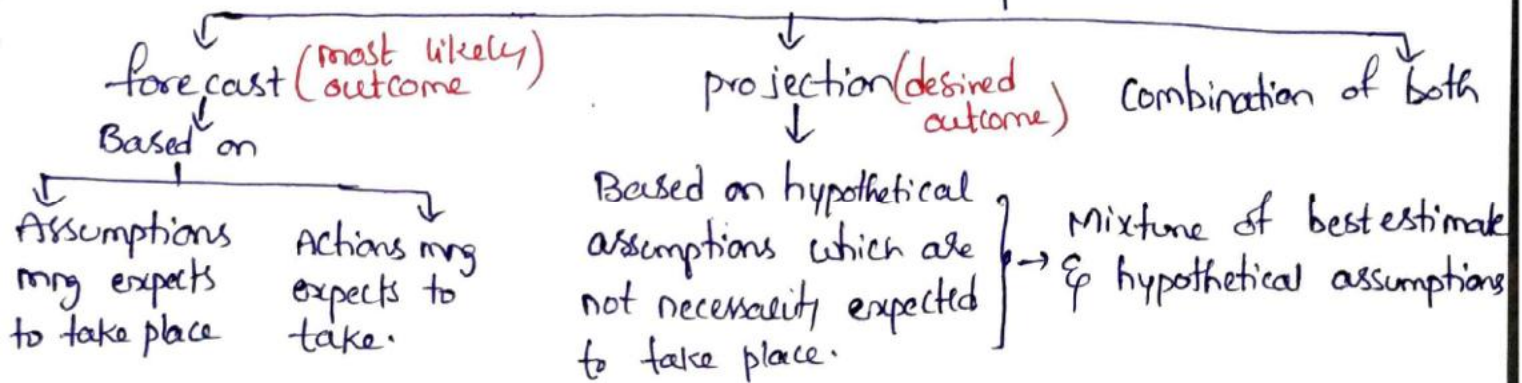 forecast (most likely
outcome)
Based on
Assumptions
mng expects
to take place
Actions mng
expects to
take.
projection (desired
outcome)
Based on hypothetical
assumptions which are
not necessarily expected
to take place.
Combination of both
Mixture of best estimate
& hypothetical assumptions